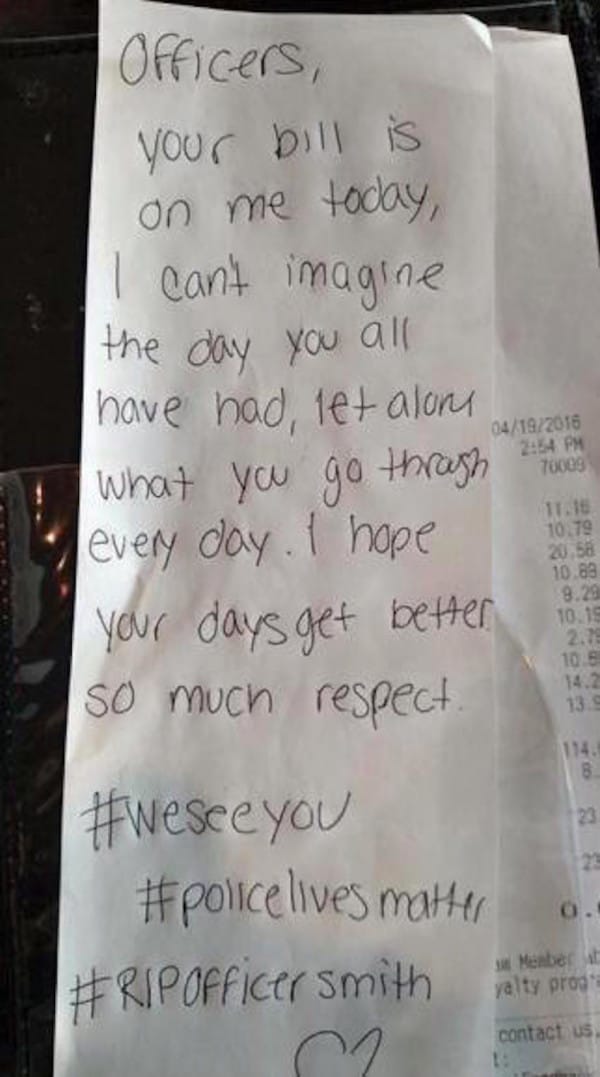 Officers,
your bill is
on me today,
I can't imagine
the day you all
have had, let alone
what you go through
every day. I hope
your days get better
so much respect.
#weseeyou
#policelivesmatter
#RIPOfficersmith
04/19/2016
2:54 PM
70009
11.16
10.79
20.58
10.89
9.29
10.19
2.79
10.8
14.2
13.9
114.
8.
23
23
0.
Member
yalty prog
contact us.